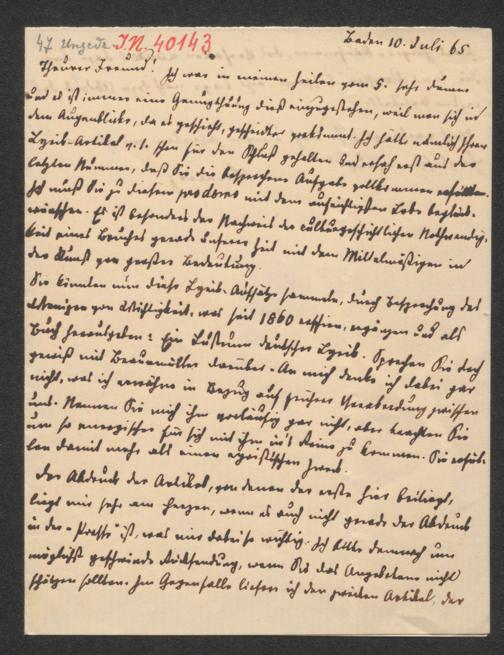 47 Ungedr. I.N. 40143
Baden 10. Juli 65
Theurer Freund! Ich war in meinen Zeilen vom 5. sehr dumm
und es ist immer eine Genugthuung dieß einzugestehen, weil man sich in
dem Augenblicke, da es geschieht, gescheidter vorkommt. Ich hatte nämlich Ihren
Lyrik-Artikel v. 1. schon für den Schluß gehalten und ersah erst aus der
letzten Nummer, daß Sie die besprochene Aufgabe vollkommen
Ich muß Sie zu diesem mit dem aufrichtigsten Lobe beglück-
wünschen. Es ist besonders der Nachweis der culturgeschichtlichen Nothwendig-
keit eines Bruches gerade unserer Zeit mit dem Mittelmäßigen in
der Kunst von großer Bedeutung.
Sie könnten nun diese Lyrik-Aufsätze sammeln, durch Besprechung des
Wenigen von Wichtigkeit, was seit 1860 erschien, ergänzen und als
Buch herausgeben: Ein Lustrum deutscher Lyrik. Sprechen Sie doch
gewiß mit Braumüller darüber. An mich denke ich dabei gar
nicht, was ich erwähne in Bezug auf frühere Verabredung zwischen
uns. Nennen Sie mich ihm vorläufig gar nicht, aber trachten Sie
um so energischer für sich mit ihm in's Reine zu kommen. Sie erfül-
len damit mehr als einen egoistischen Zweck.
Der Abdruck der Artikel, von denen der erste hier beiliegt,
liegt mir sehr am Herzen, wenn es auch nicht gerade der Abdruck
in der „Presse" ist, was mir dabei so wichtig. Ich bitte demnach um
möglichst geschwinde Rücksendung, wenn Sie das Angebotene nicht
schätzen sollten. Im Gegenfalle liefere ich den zweiten Artikel, der